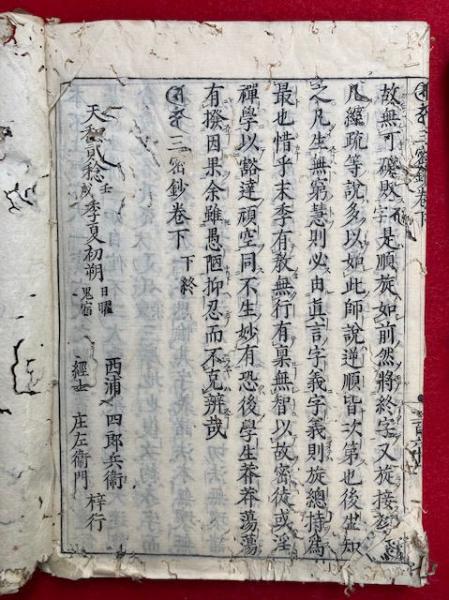 三密鈔卷下
故無可礙毀字是順旋如前然將終字又旋接
凡經疏等說多以如此師說逆順皆次第也後生知
之凡生無窮慧則必由眞言字義字義則旋總持爲
最也惜乎末季有敎無行有稟無智以故密徒或淫
禪學以豁達頑空同不生妙有恐後學生莽莽蕩蕩
有撥因果余雖愚陋抑忍而不克辨哉
三密鈔卷下 下終
天和貳稔壬戌季夏初朔日曜鬼宿
西浦 四郎兵衞
經士 庄左衞門 梓行